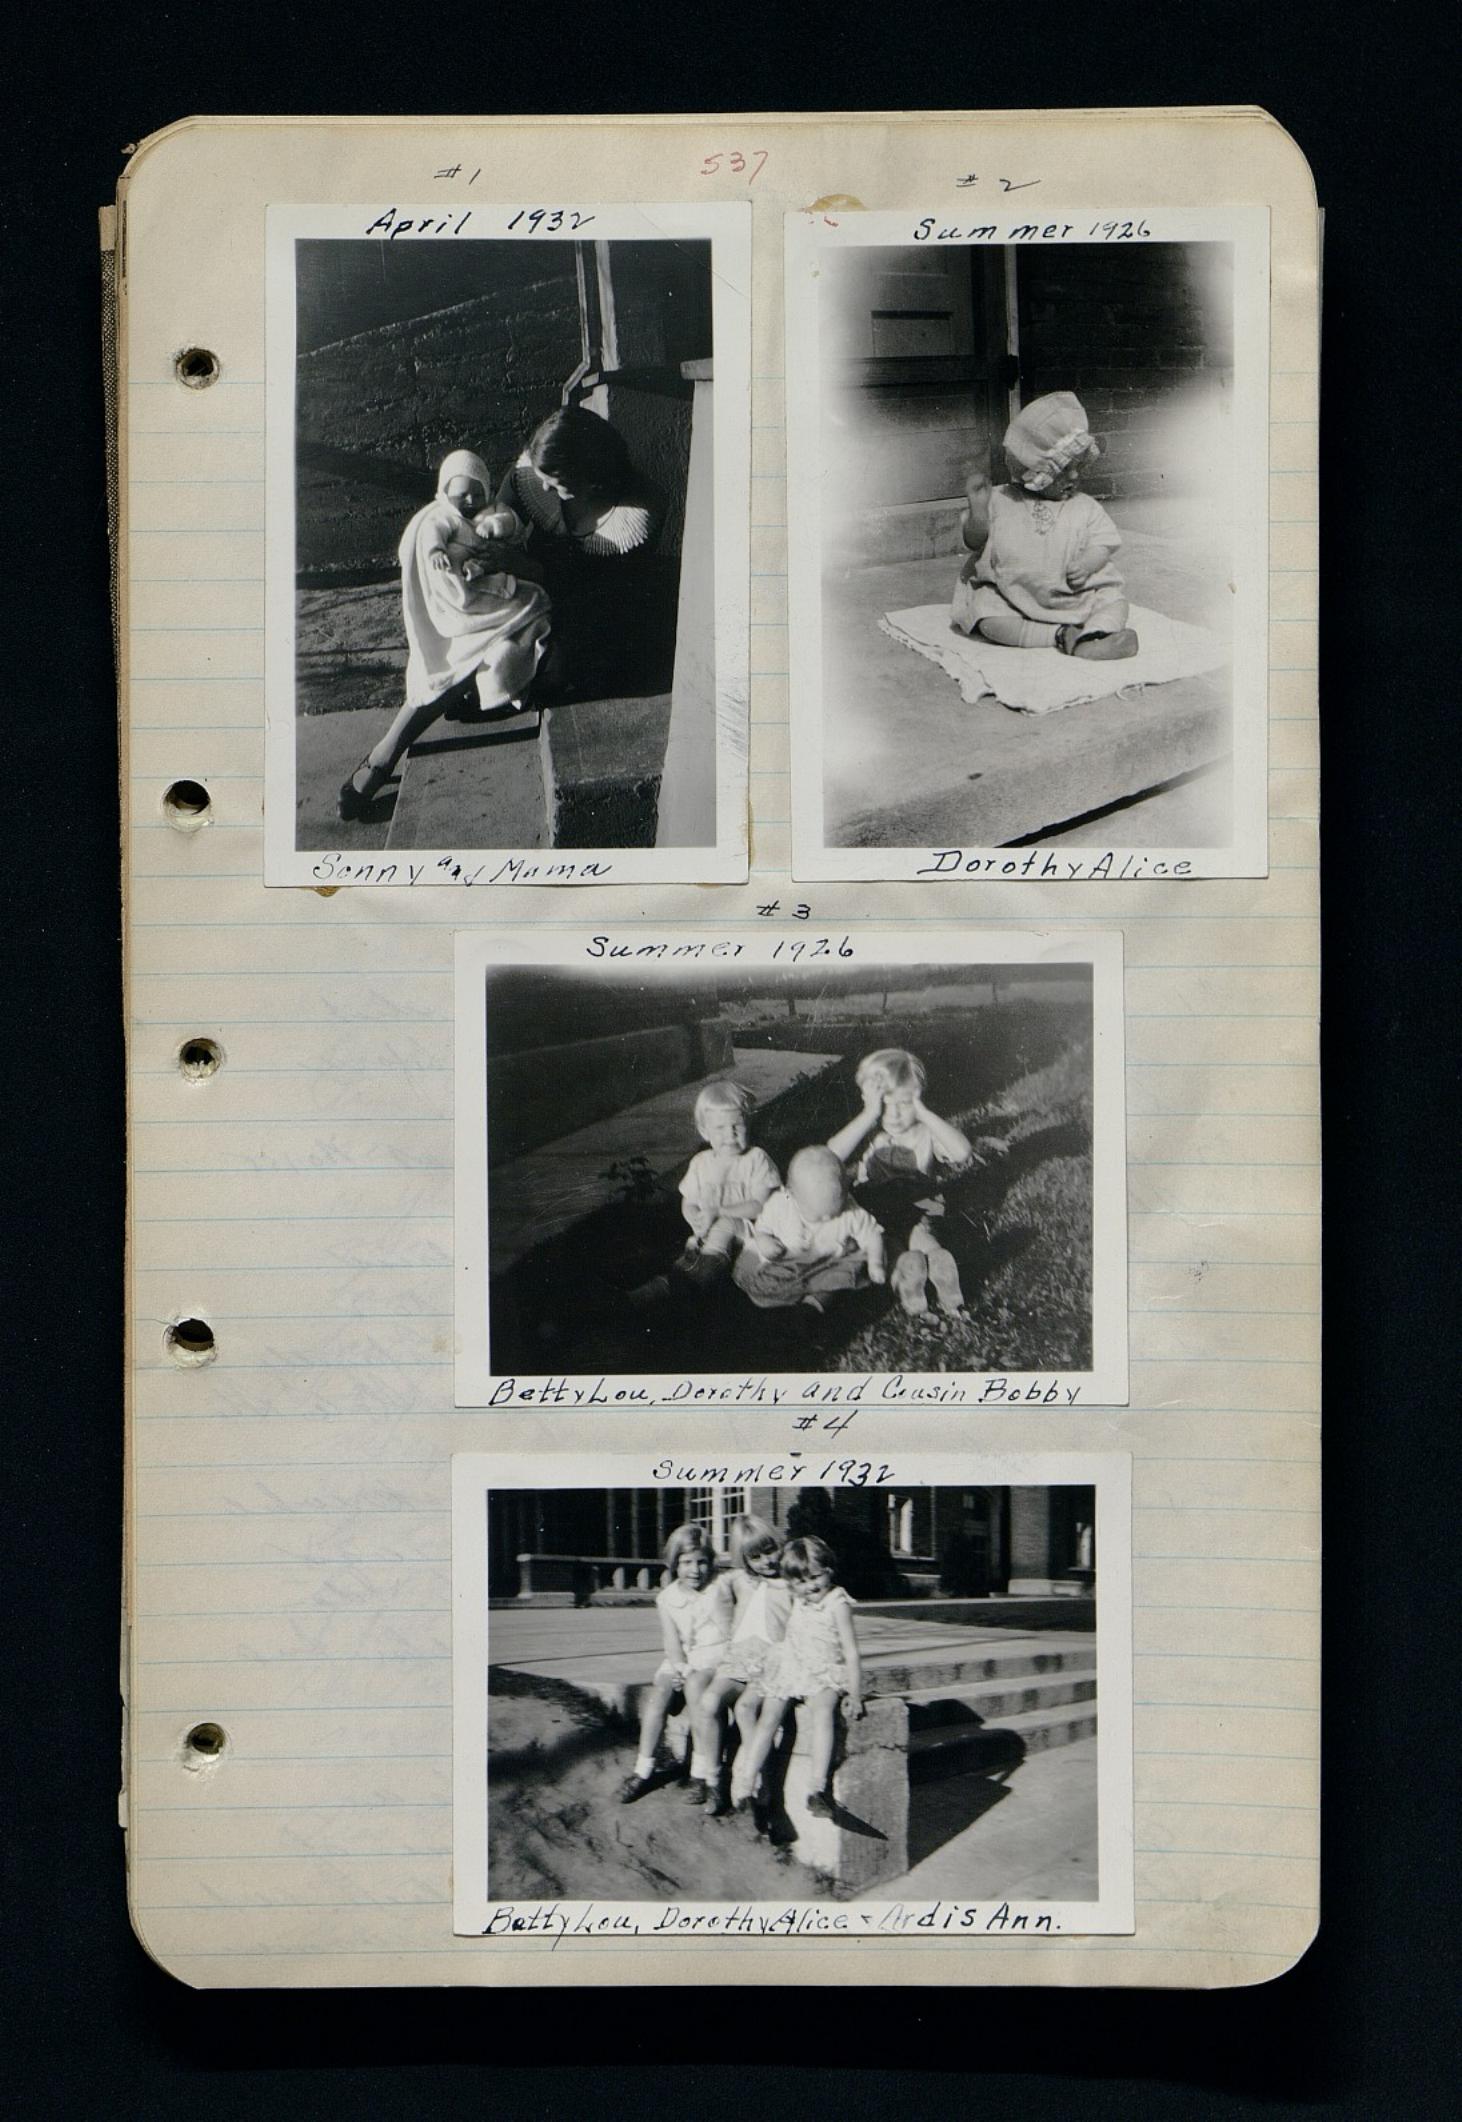 537
#1
#2
April 1932
Summer 1926
Sonny and Mama
Dorothy Alice
#3
Summer 1926
Betty Lou, Dorothy and Cousin Bobby
#4
Summer 1932
Betty Lou, Dorothy Alice & Ardis Ann.